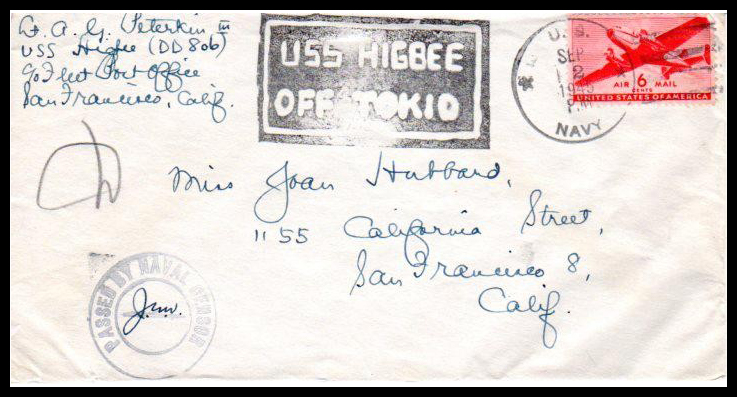 Lt. A. G. Peterkin III
USS Higbee (DD 806)
℅ Fleet Post Office
San Francisco, Calif.
USS HIGBEE
OFF TOKIO
U.S.
SEP
2
1945
P.M.
NAVY
AIR 6 MAIL
CENTS
UNITED STATES OF AMERICA
Miss Joan Hubbard,
1155 California Street,
San Francisco 8,
Calif.
PASSED BY NAVAL CENSOR